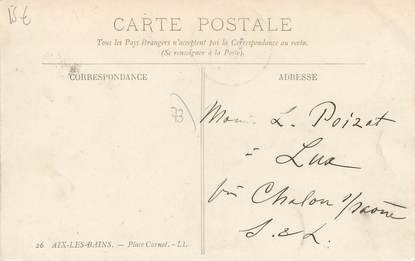 15 €
CARTE POSTALE
Tous les Pays étrangers n'acceptent pas la Correspondance au recto.
(Se renseigner à la Poste).
CORRESPONDANCE
ADRESSE
73
L. Poizat
à
Lux
par Chalon s/Saône
S. & L.
26 AIX-LES-BAINS. — Place Carnot. — LL.